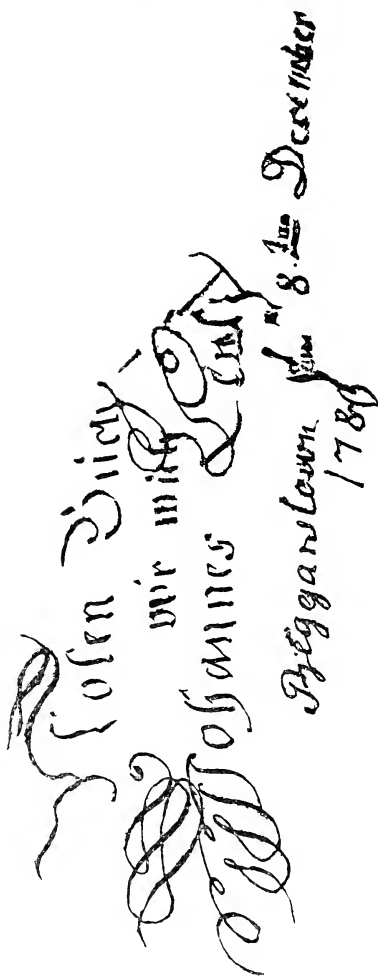 Losen Büch
wir mich
Johannes Lenß
Beggarstown den 8.ten December
178